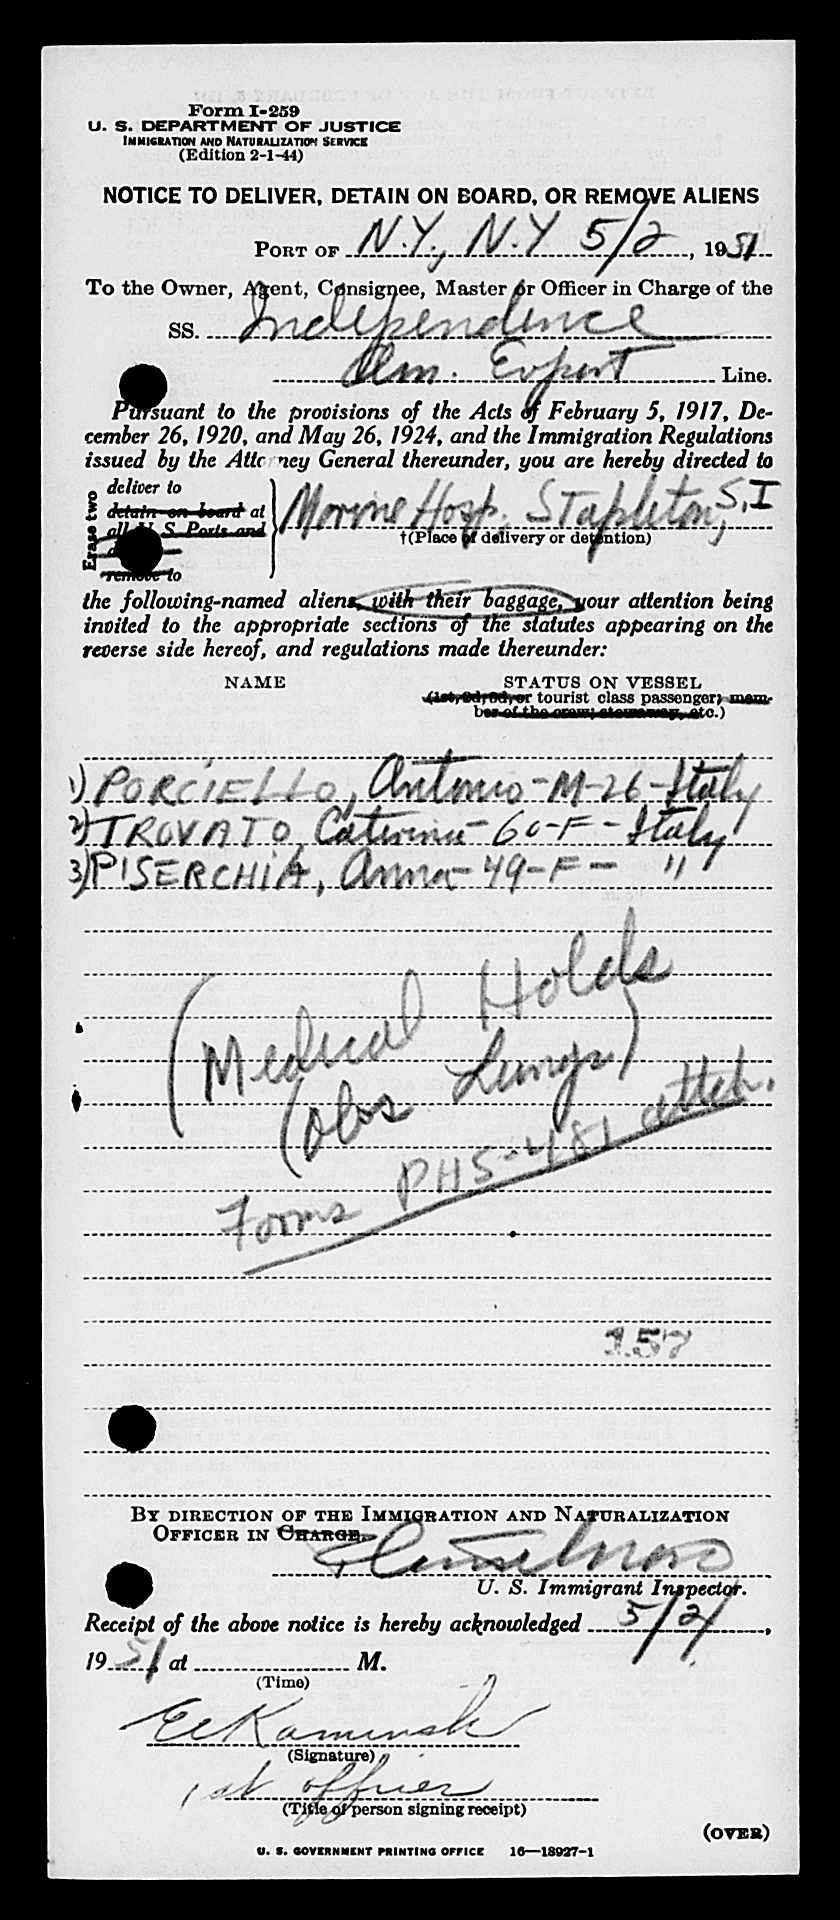 Form I-259
U. S. DEPARTMENT OF JUSTICE
IMMIGRATION AND NATURALIZATION SERVICE
(Edition 2-1-44)
NOTICE TO DELIVER, DETAIN ON BOARD, OR REMOVE ALIENS
PORT OF N.Y., N.Y 5/2, 1951
To the Owner, Agent, Consignee, Master or Officer in Charge of the
SS. Independence
Am. Export Line.
Pursuant to the provisions of the Acts of February 5, 1917, De-
cember 26, 1920, and May 26, 1924, and the Immigration Regulations
issued by the Attorney General thereunder, you are hereby directed to
Erase two
deliver to
detain on board at
all U S Ports and
remove to
Marine Hosp, Stapleton, S.I
†(Place of delivery or detention)
the following-named aliens, with their baggage, your attention being
invited to the appropriate sections of the statutes appearing on the
reverse side hereof, and regulations made thereunder:
NAME STATUS ON VESSEL
(1st, 2d, 3d, or tourist class passenger; mem-
ber of the crew; stowaway, etc.)
1) PORCIELLO, Antonio - M - 26 - Italy
2) TROVATO, Caterina - 60 - F - Italy
3) PISERCHIA, Anna - 49 - F - "
(Medical Holds
(obs Lungs)
Forms PHS-481 attch.
157
BY DIRECTION OF THE IMMIGRATION AND NATURALIZATION
OFFICER IN CHARGE.
U. S. Immigrant Inspector.
Receipt of the above notice is hereby acknowledged 5/2/,
1951, at M.
(Time)
(Signature)
1st officer
(Title of person signing receipt)
(OVER)
U. S. GOVERNMENT PRINTING OFFICE 16—18927-1